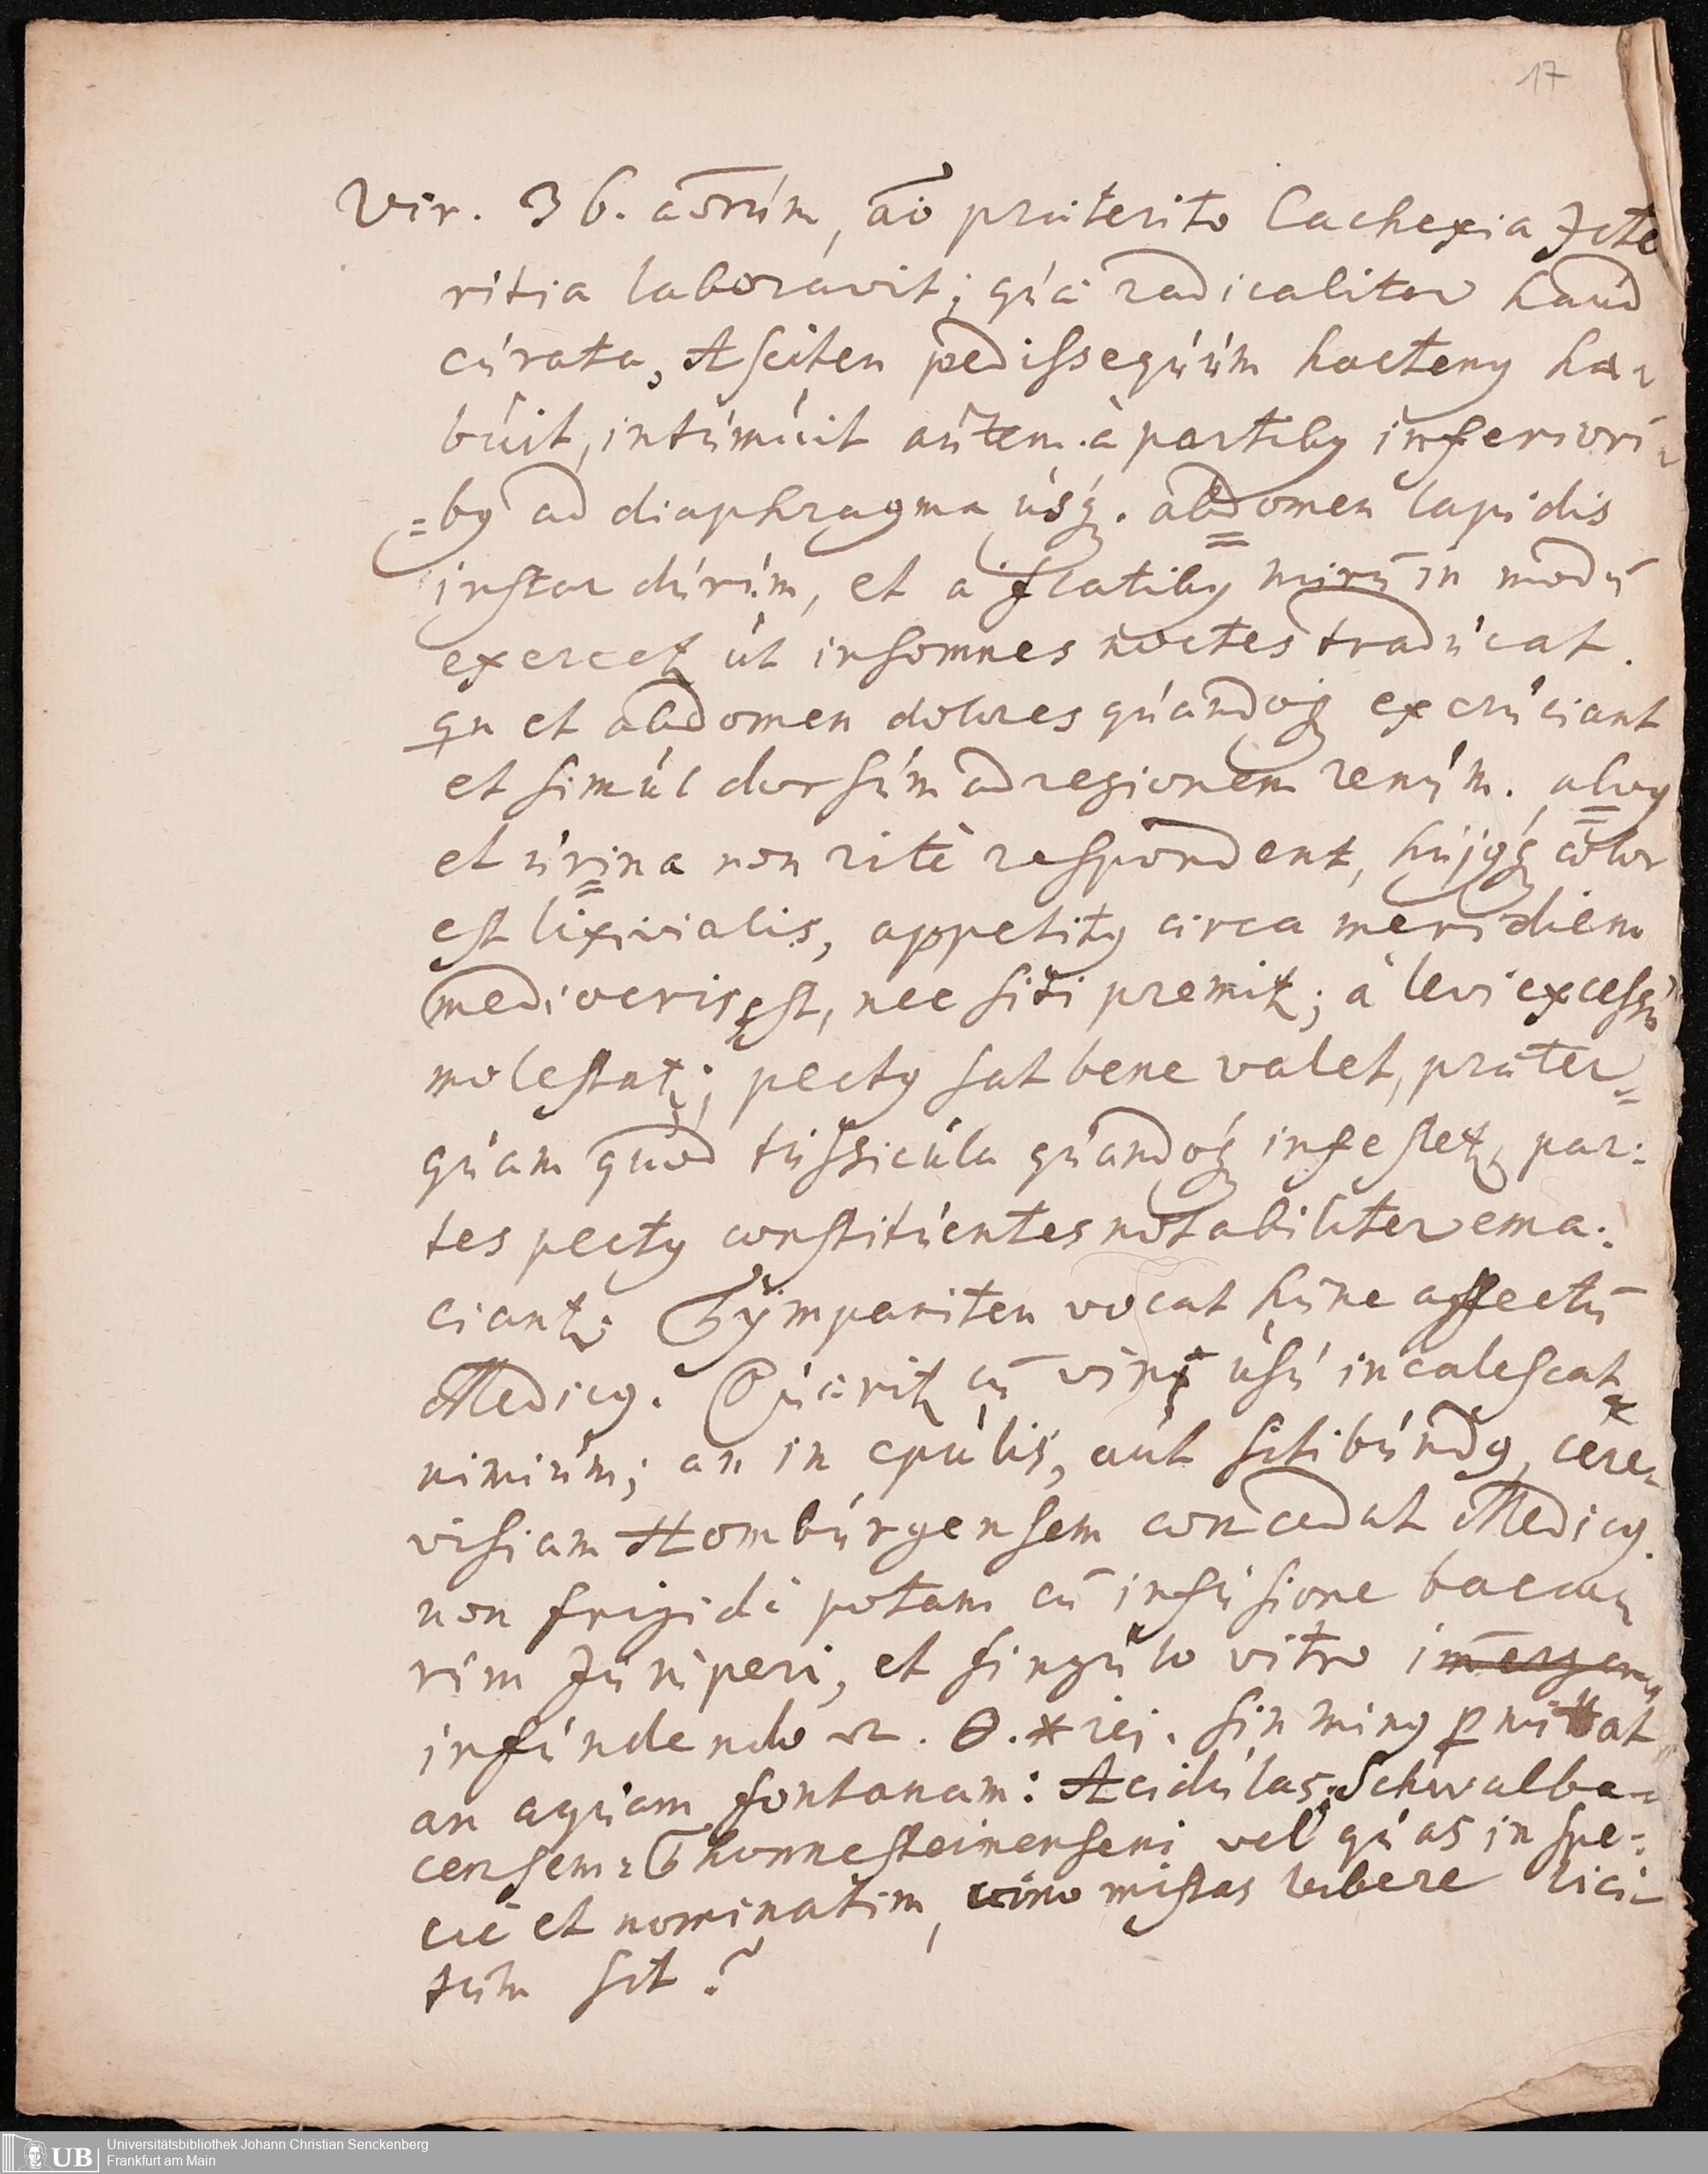 17
Vir. 36. aōrum, aō præterito Cachexia Icte
ritia laboravit; quæ radicaliter haud
curata, Asciten pedissequum hacteng ha-
buit, intumuit autem à partibg inferiori-
=bg ad diaphragma usq. abdomen lapidis
instar durum, et à flatibg mirū in modū
exercet ut insomnes noctes traducat.
qn et abdomen dolores quandoq excruciant
et simul dorsum ad regionem renum. alvg
et urina non ritè respondent, hujgq color
est lixivialis, appetitg circa meridiem
mediocris est, nec siti premit; à levi excessu
molestat; pectg sat bene valet, præter=
quam quod tussicula quandoq infestet, par:
tes pectg constituentes notabiliter ema:
ciant. Tÿmpaniten vocat hunc affectū
Medicg. Quærit cū vini usu incalescat
nimium; an in epulis, aut sitibundg, cere-
visiam Homburgensem concedat Medicg.
non frigidè potam cū infusione baccar
rum Juniperi, et singulo vitro
infundendo . sin ming pmittat
an aquam fontanam: Acidulas Schwalba-
censem: Thonnesteinensem vel quas in spe:
cie et nominatim, vino mistas bibere lici-
tum sit?
UB
Universitätsbibliothek Johann Christian Senckenberg
Frankfurt am Main